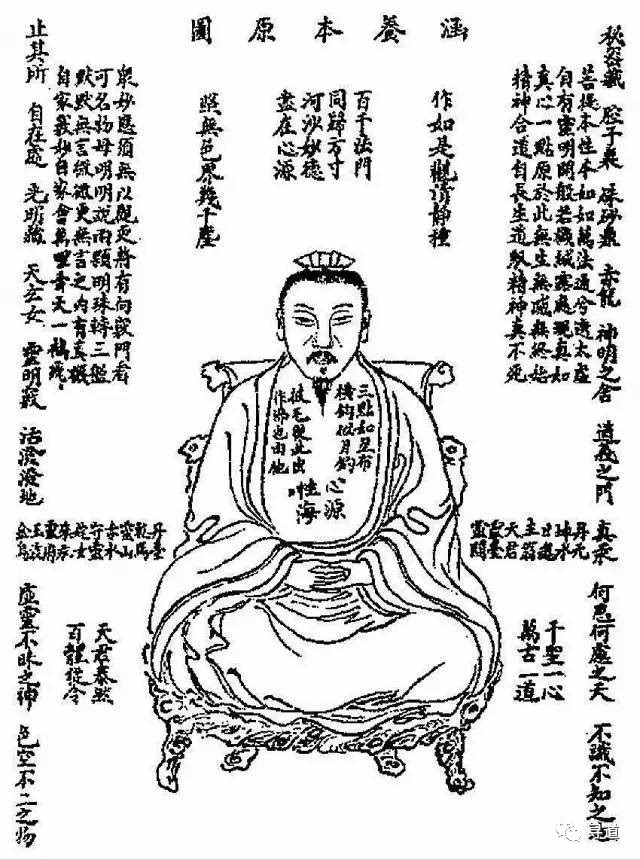 涵養本原圖
秘密藏 腔子裏 硃砂鼎 赤龍 神明之舍 道義之門 真汞 何思何慮之天 不識不知之地
菩提本性本如如萬法通兮透太虛
自有靈明開般若機緘露處現真如
真心一點原於此無生無滅無終始
精神合道自長生道馭精神真不死
作如是觀清靜種
百千法門
同歸方寸
河沙妙德
盡在心源
照無色界幾千塵
眾妙懸須無以觀更將有向竅門看
可名物母明明說兩顆明珠轉三盤
默默無言微微更無言之內有真機
自家義妙自家會萬里青天一鶴飛
三點如星布
橫鈎似月鈎
披毛從此出
作佛也由他
心源
性海
丹元
坤水
主翁
天君
靈臺
靈關
丹臺
乾馬
靈山
赤水
守靈
姹女
靈府
金烏
千聖一心
萬古一道
天君泰然
百體從令
止其所 自在處 光明藏 天玄女 靈明竅 活潑潑地 虛靈不昧之神 色空不二之物
寻道